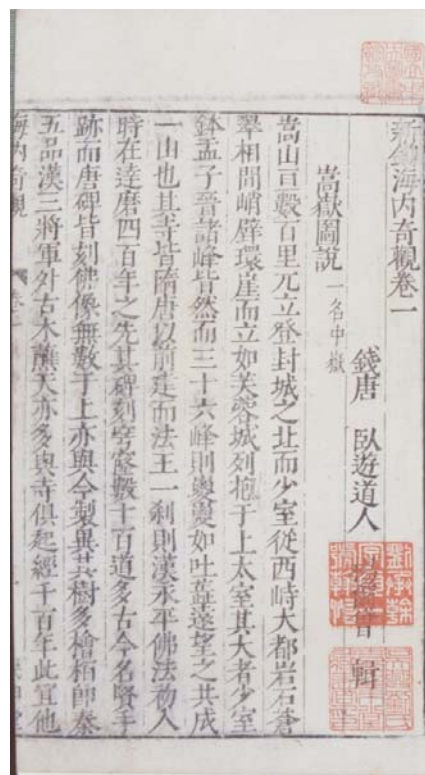 新鐫海内奇觀卷一
錢唐 臥遊道人 楊爾曾 輯
嵩嶽圖說 一名中嶽
嵩山亘數百里元立登封城之北而少室從西峙大都岩石蒼
翠相間峭壁環崖而立如芙蓉城列抱于上太室其大者少室
鉢盂子晉諸峰皆然而三十六峰則嶷嶷如吐蕋遠望之共成
一山也其寺皆隋唐以前建而法王一刹則漢永平佛法初入
時在達磨四百年之先其碑刻穹窿數十百道多古今名賢手
跡而唐碑皆刻佛像無數于上亦與今製異其樹多檜栢即秦
五品漢三將軍外古木蘸天亦多與寺俱起經千百年此宜他
海内奇觀 卷一